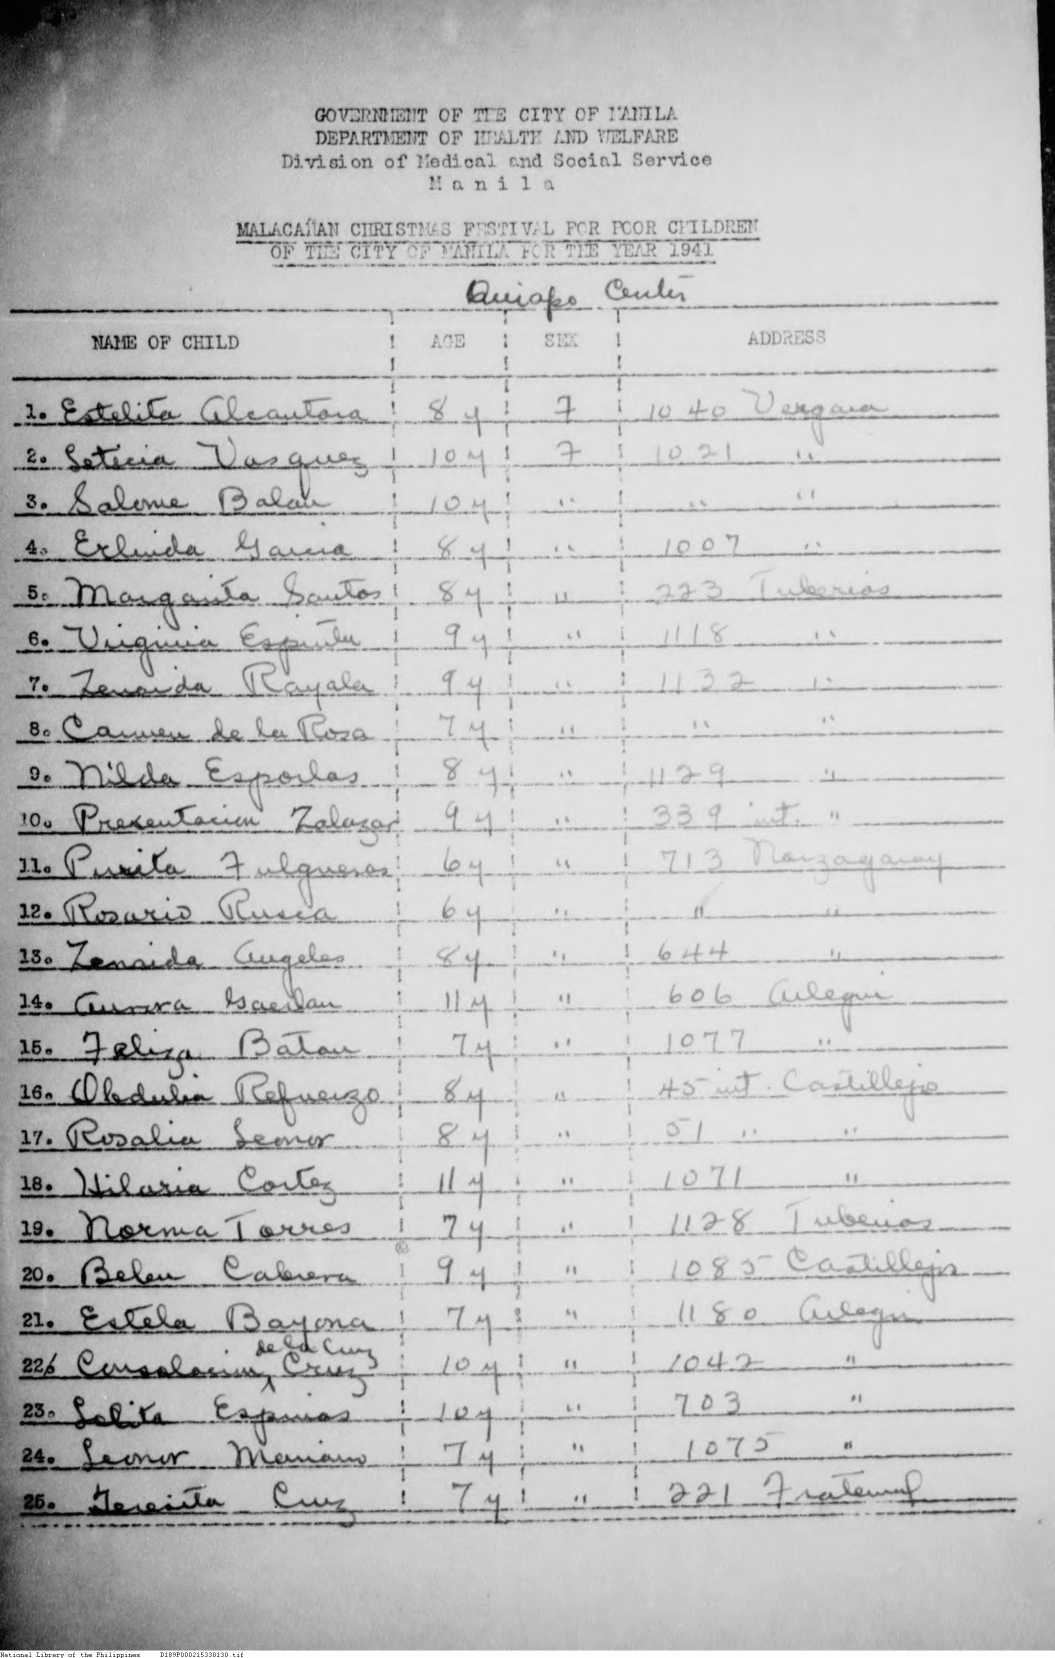 GOVERNMENT OF THE CITY OF MANILA
DEPARTMENT OF HEALTH AND WELFARE
Division of Medical and Social Service
Manila
MALACAÑAN CHRISTMAS FESTIVAL FOR POOR CHILDREN
OF THE CITY OF MANILA FOR THE YEAR 1941
Quiapo Center
NAME OF CHILD AGE SEX ADDRESS
1. Estelita Alcantara 8 y F 1040 Vergara
2. Leticia Vasquez 10 y F 1021 "
3. Salome Balau 10 y " " "
4. Erlinda Garcia 8 y " 1007 "
5. Margarita Santos 8 y " 223 Tuberias
6. Virginia Espiritu 9 y " 1118 "
7. Zenaida Rayala 9 y " 1132 "
8. Carmen de la Rosa 7 y " " "
9. Nilda Esporlas 8 y " 1129 "
10. Presentacion Zalazar 9 y " 339 int. "
11. Purita Fulgueras 6 y " 713 Norzagaray
12. Rosario Rusca 6 y " " "
13. Zenaida Angeles 8 y " 644 "
14. Aurora Gaerlan 11 y " 606 Arlegui
15. Feliza Batau 7 y " 1077 "
16. Obdulia Refuerzo 8 y " 45 int. Castillejo
17. Rosalia Leonor 8 y " 51 " "
18. Hilaria Cortez 11 y " 1071 "
19. Norma Torres 7 y " 1128 Tuberias
20. Belen Cabrera 9 y " 1085 Castillejo
21. Estela Bayona 7 y " 1180 Arlegui
de la Cruz
22. Consolacion Cruz 10 y " 1042 "
23. Lolita Espinas 10 y " 703 "
24. Leonor Mariano 7 y " 1075 "
25. Teresita Cruz 7 y " 221 Fraternal
National Library of the Philippines D189P000215338130.tif